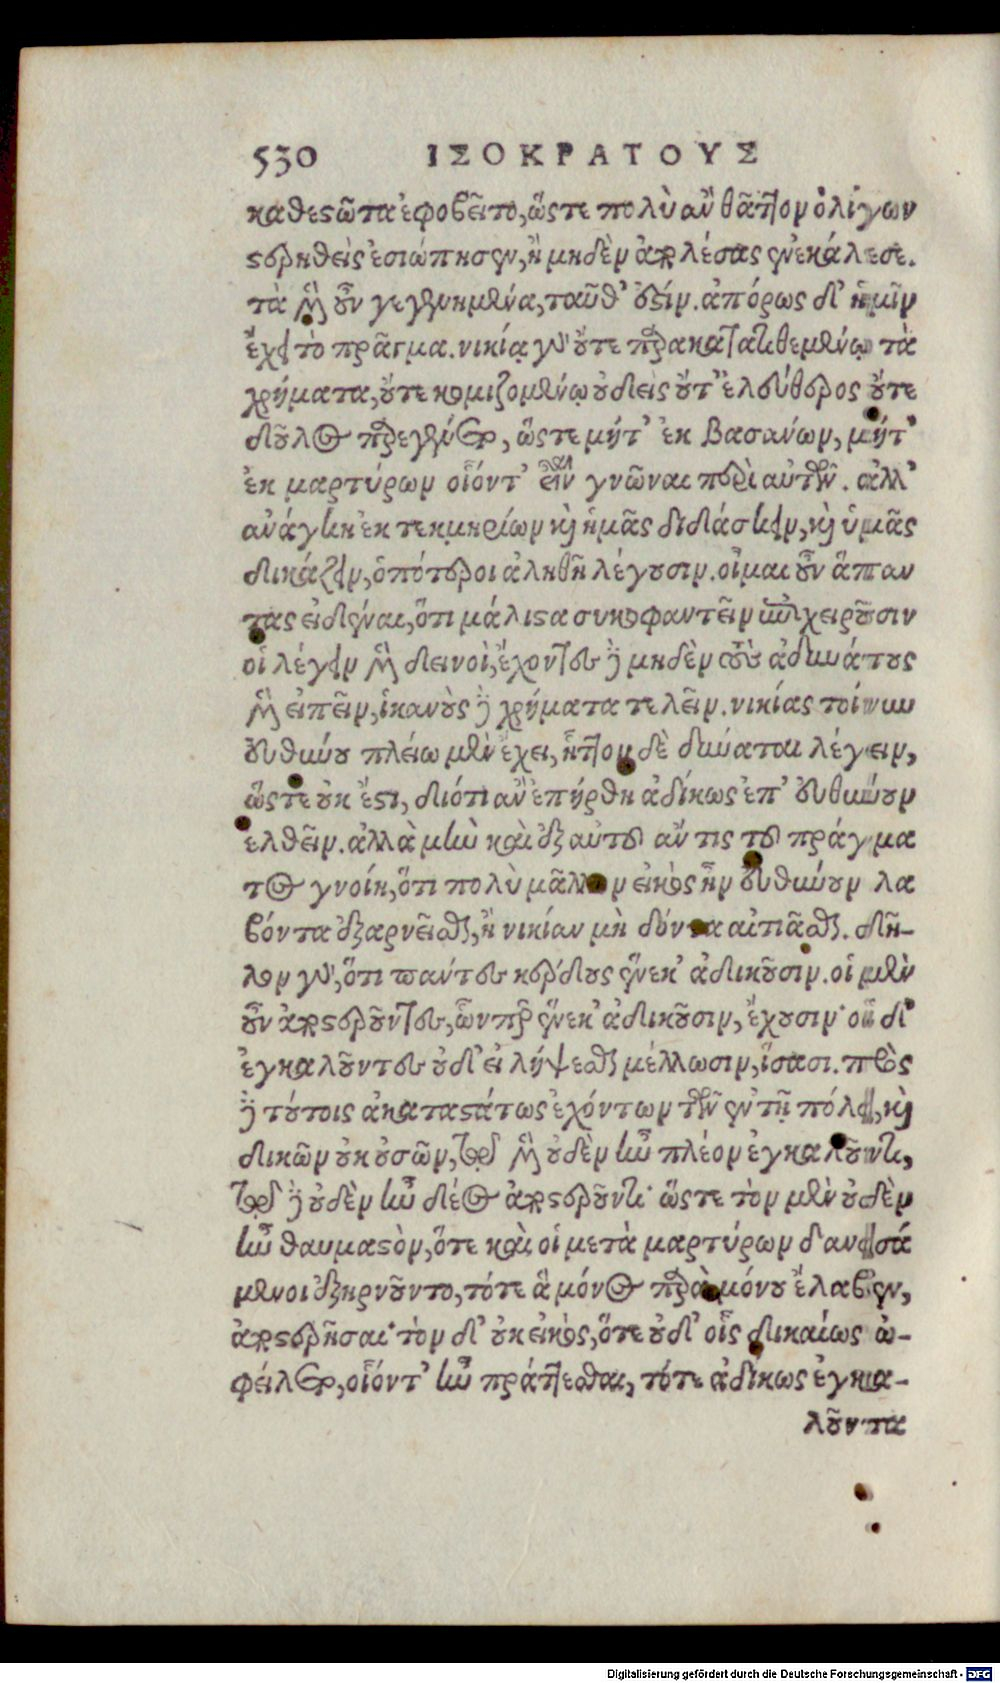 530 ΙΣΟΚΡΑΤΟΥΣ
καθεστῶτα ἐφοβεῖτο, ὥστε πολὺ ἂν θᾶττον ὀλίγων
στερηθεὶς ἐσιώπησεν, ἢ μηδὲν ἀπολέσας ἐνεκάλεσε.
τὰ μὲν οὖν γεγενημένα, ταῦθ' ἐστίν. ἀπόρως δ' ἡμῖν
ἔχει τὸ πρᾶγμα. νικίᾳ γὰρ οὔτε παρακατατιθεμένῳ τὰ
χρήματα, οὔτε κομιζομένῳ οὐδεὶς οὔτ' ἐλεύθερος οὔτε
δοῦλος παρεγένετο, ὥστε μήτ' ἐκ βασάνων, μήτ'
ἐκ μαρτύρων οἷόντ' εἶναι γνῶναι περὶ αὐτῶν. ἀλλ'
ἀνάγκη ἐκ τεκμηρίων καὶ ἡμᾶς διδάσκειν, καὶ ὑμᾶς
δικάζειν, ὁπότεροι ἀληθῆ λέγουσιν. οἶμαι οὖν ἅπαν
τας εἰδέναι, ὅτι μάλιστα συκοφαντεῖν ἐπιχειροῦσιν
οἱ λέγειν μὲν δεινοὶ, ἔχοντες δὲ μηδὲν τοὺς ἀδυνάτους
μὲν εἰπεῖν, ἱκανοὺς δὲ χρήματα τελεῖν. νικίας τοίνυν
εὐθύνου πλείω μὲν ἔχει, ἧττον δὲ δύναται λέγειν,
ὥστε οὐκ ἔστι, διότι ἂν ἐπήρθη ἀδίκως ἐπ' εὐθύνουν
ἐλθεῖν. ἀλλὰ μὴν καὶ ἐξ αὐτοῦ ἄν τις τοῦ πράγμα
τος γνοίη, ὅτι πολὺ μᾶλλον εἰκὸς ἦν εὐθύνουν λα
βόντα ἐξαρνεῖσθαι, ἢ νικίαν μὴ δόντα αἰτιᾶσθαι. δῆ-
λον γὰρ, ὅτι πάντες κέρδους ἕνεκ' ἀδικοῦσιν. οἱ μὲν
οὖν ἀποστεροῦντες, ὧνπερ ἕνεκ' ἀδικοῦσιν, ἔχουσιν· οἱ δ'
ἐγκαλοῦντες οὐδ' εἰ λήψεσθαι μέλλωσιν, ἴσασι. πρὸς
δὲ τούτοις ἀκαταστάτως ἐχόντων τῶν ἐν τῇ πόλει, καὶ
δικῶν οὐκ οὐσῶν, τῷ μὲν οὐδὲν ἦν πλέον ἐγκαλοῦντι,
τῷ δὲ οὐδὲν ἦν δέος ἀποστεροῦντι· ὥστε τὸν μὲν οὐδὲν
ἦν θαυμαστὸν, ὅτε καὶ οἱ μετὰ μαρτύρων δανεισά
μενοι ἐξηρνοῦντο, τότε ἃ μόνος παρὰ μόνου ἔλαβεν,
ἀποστερῆσαι· τὸν δ' οὐκ εἰκὸς, ὅτε οὐδ' οἷς δικαίως ὠ-
φείλετο, οἷόντ' ἦν πράττεσθαι, τότε ἀδίκως ἐγκα-
λοῦντα
Digitalisierung gefördert durch die Deutsche Forschungsgemeinschaft - DFG